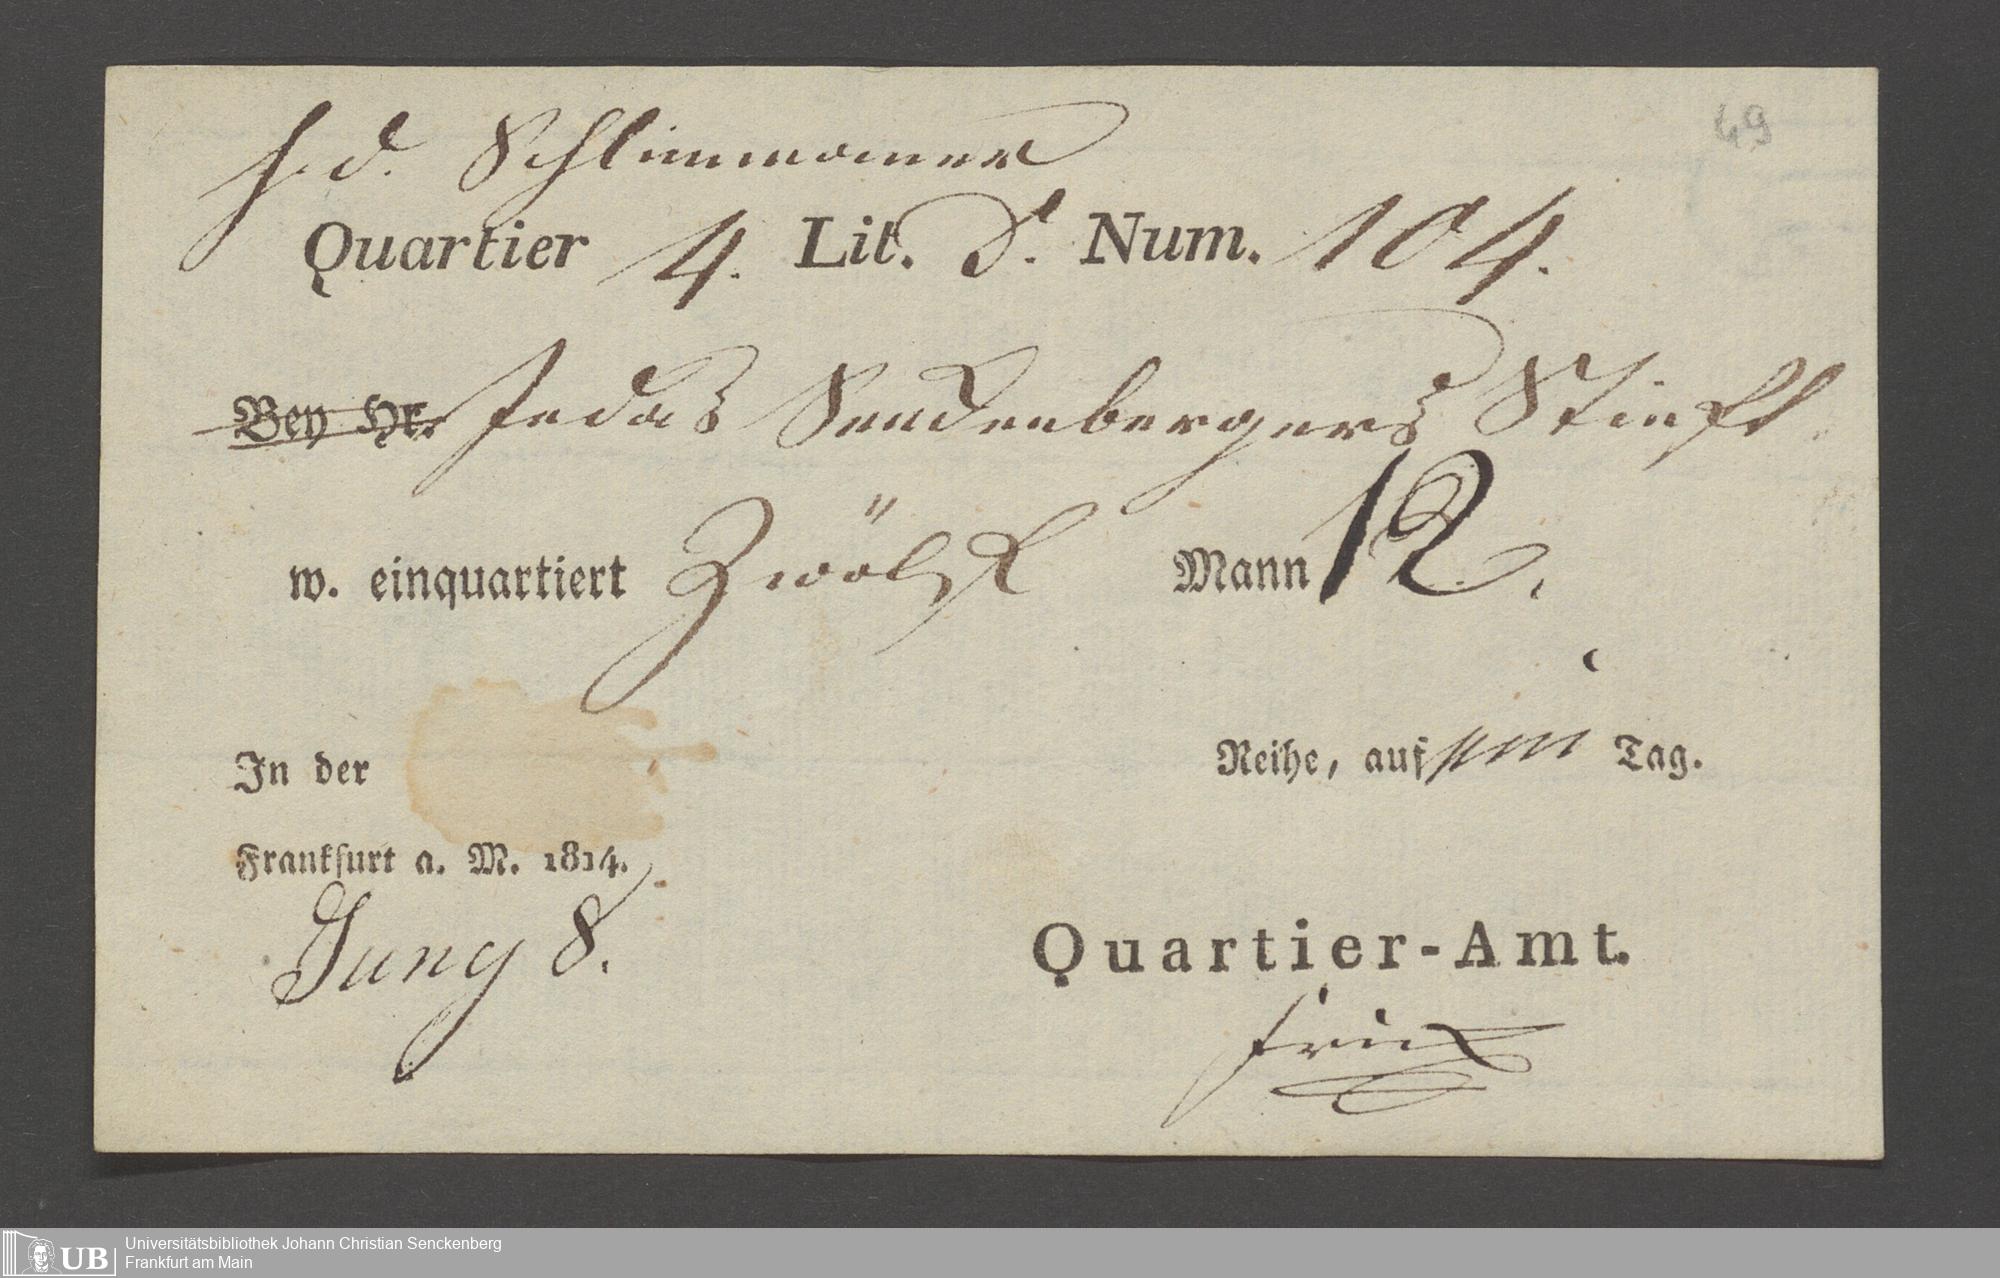 49
H. d. Schlimmamer
Quartier 4. Lit. D. Num. 104.
Bey Hr. In das Senckenbergers Stift
w. einquartiert Zwölf Mann 12.
In der Reihe, auf ein Tag.
Frankfurt a. M. 1814.
Juny 8.
Quartier-Amt.
UB Universitätsbibliothek Johann Christian Senckenberg
Frankfurt am Main